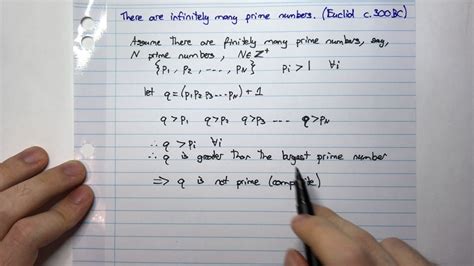 There are infinitely many prime numbers. (Euclid c.300BC)
Assume there are finitely many prime numbers, say,
N prime numbers, N∈Z⁺
{p₁, p₂, ..., p_N} pᵢ > 1 ∀i
let q = (p₁p₂p₃...p_N) + 1
q > p₁ q > p₂ q > p₃ ... q > p_N
∴ q > pᵢ ∀i
∴ q is greater than the largest prime number
⟹ q is not prime (composite)